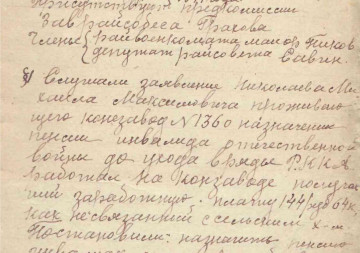 Присутствует предкомиссии
Зав райсобеса Грахова
Члены райвоенкомата майор Пиков
депутат райсовета Савин.
8) Слушали заявление Николаева Ми-
хаила Максимовича проживаю
щего конезавод N 136 о назначении
пенсии инвалида отечественной
войны до ухода в ряды РККА
работал на конзаводе получав
ший заработную плату 144 руб 64 к
как не связанный с сельским х-м
Постановили: назначить пенсию